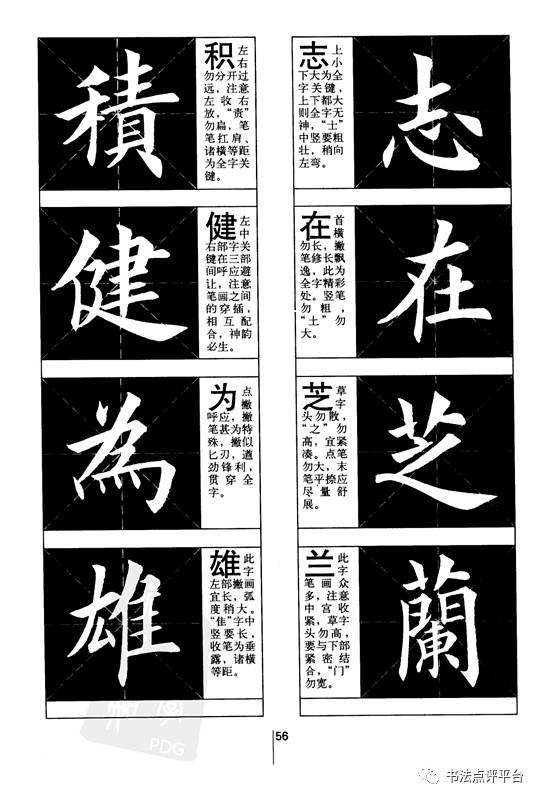 積
积 左右
勿分开过
远，注意
左收右
放，“责”
勿扁，笔
笔扛肩、
诸横等距
为全字关
键。
健
健 左中
右部字关
键在三部
间呼应避
让，注意
笔画之间
的穿插，
相互配
合，神韵
必生。
為
为 点撇
呼应，撇
笔甚为特
殊，撇似
匕刃，遒
劲锋利，
贯穿全
字。
雄
雄 此字
左部撇画
宜长，弧
度稍大。
“隹”字中
竖要长，
收笔为垂
露，诸横
等距。
志 上小
下大为全
字关键，
上下都大
则全字无
神，“士”
中竖要粗
壮，稍向
左弯。
志
在 首横
勿长，撇
笔修长飘
逸，此为
全字精彩
处。竖笔
勿粗，
“土”勿
大。
在
芝 草字
头勿散，
“之”勿
高，宜紧
凑。点笔
勿大，末
笔平捺应
尽量舒
展。
芝
兰 此字
笔画众
多，注意
中宫收
紧，草字
头勿高，
要与下部
紧密结
合，“门”
勿宽。
蘭
PDG
56
书法点评平台